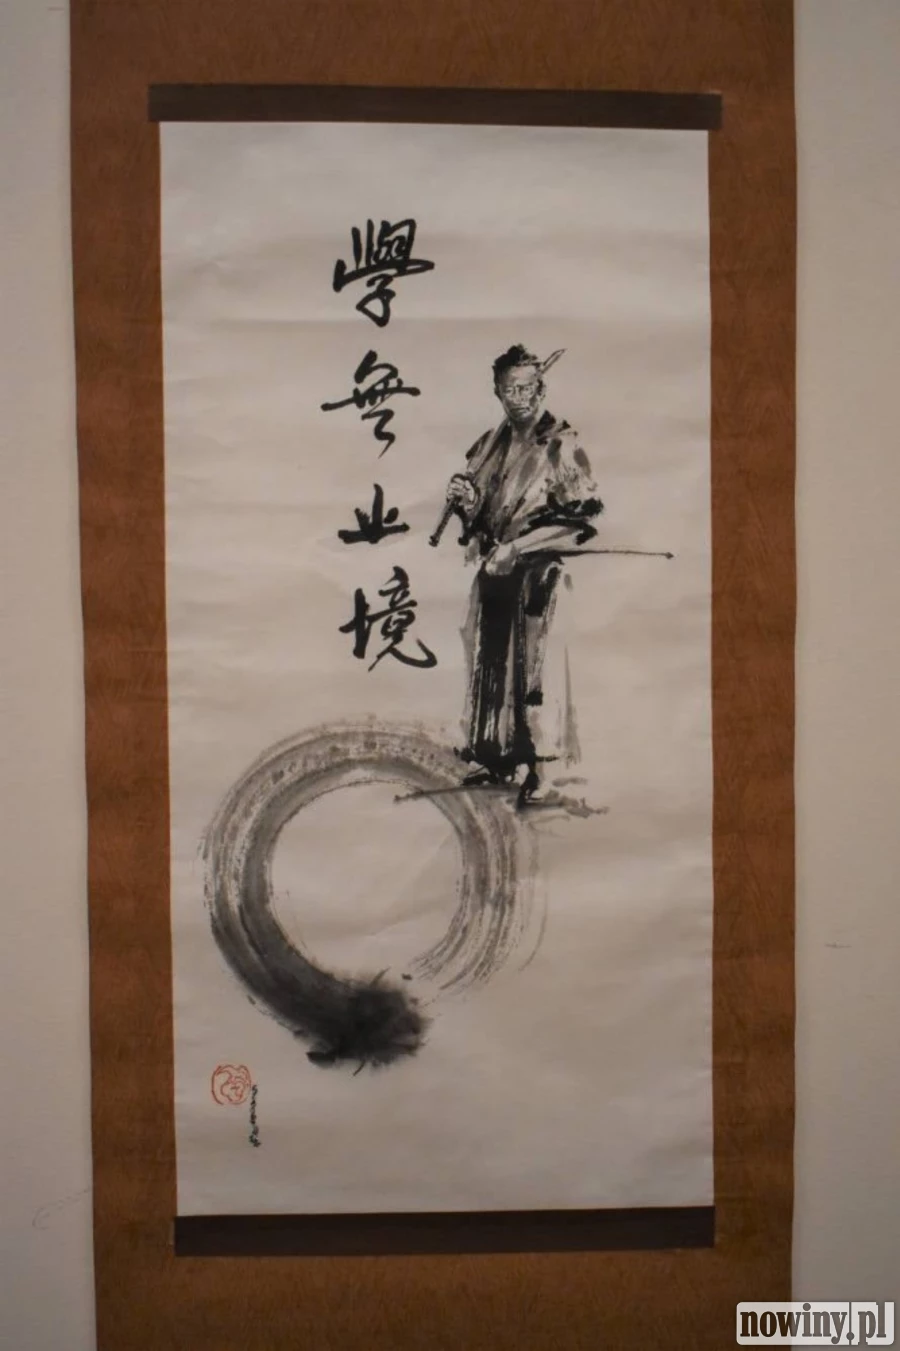 學無止境
nowiny.pl